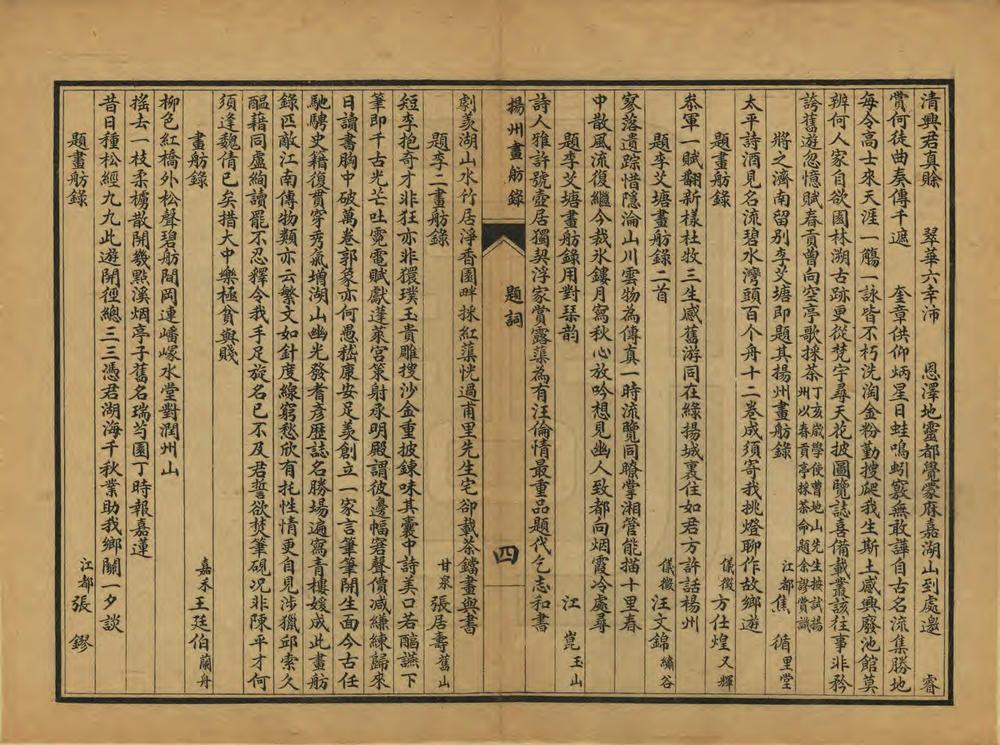 清興君真賒　翠華六幸沛　恩澤地靈都覺蒙麻嘉湖山到處邀　睿
賞何徒曲奏傳千遮　奎章供仰炳星日蛙鳴蚓竅無敢譁自古名流集勝地
每令高士來天涯一觴一詠皆不朽洗淘金粉勤搜爬我生斯土感興廢池館莫
辨何人家自欲園林溯古跡更從梵宇尋天花披圖覽誌喜備載叢該往事非矜
誇舊遊忽憶賦春貢曾向空亭歌採茶丁亥歲學使曹地山先生按試揚州以春貢亭採茶命題余謬賞識
將之濟南留別李艾塘即題其揚州畫舫錄　江都焦　循里堂
太平詩酒見名流碧水灣頭百个舟十二卷成須寄我挑燈聊作故鄉遊
題畫舫錄　儀徵方仕煌又輝
叅軍一賦翻新樣杜牧三生感舊游同在綠揚城裏住如君方許話楊州
題李艾塘畫舫錄二首　儀徵汪文錦繡谷
寥落遺踪惜隱淪山川雲物為傳真一時流覽同瞭掌湘管能描十里春
中散風流復繼今裁氷鏤月寫秋心放吟想見幽人致都向烟霞冷處尋
題李艾塘畫舫錄用對琹韵　江　崑玉山
詩人雅許號壺居獨契浮家賞露蕖為有汪倫情最重品題代乞志和書
揚州畫舫錄　題詞　四
劇羨湖山水竹居淨香園畔採紅蕖恍過甫里先生宅卻載茶鐺畫與書
題李二畫舫錄　甘泉張居壽舊山
短李抱奇才非狂亦非獧璞玉貴雕搜沙金重披鍊味其囊中詩美口若醧讌下
筆即千古光芒吐霓電賦獻蓬萊宮策射承明殿謂彼邊幅窘聲價减縑練歸來
日讀書胸中破萬卷郭象亦何愚嵇康安足羨創立一家言筆筆開生面今古任
馳騁史籍復貫穿秀氣增湖山幽光發耆彥歷誌名勝場遍寫青樓嫒成此畫舫
錄匹敵江南傳物類亦云繁文如針度線窮愁欣有托性情更自見涉獵邱索久
醞藉同盧絢讀罷不忍釋令我手足旋名已不及君誓欲焚筆硯况非陳平才何
須逢魏倩已矣措大中樂極貧與賤
畫舫錄　嘉禾王廷伯蘭舟
柳色紅橋外松聲碧舫間岡連嶓冢水堂對潤州山
搖去一枝柔櫓散開幾點溪烟亭子舊名瑞芍園丁時報嘉蓮
昔日種松經九九此遊開徑總三三憑君湖海千秋業助我鄉關一夕談
題畫舫錄　江都張　鏐